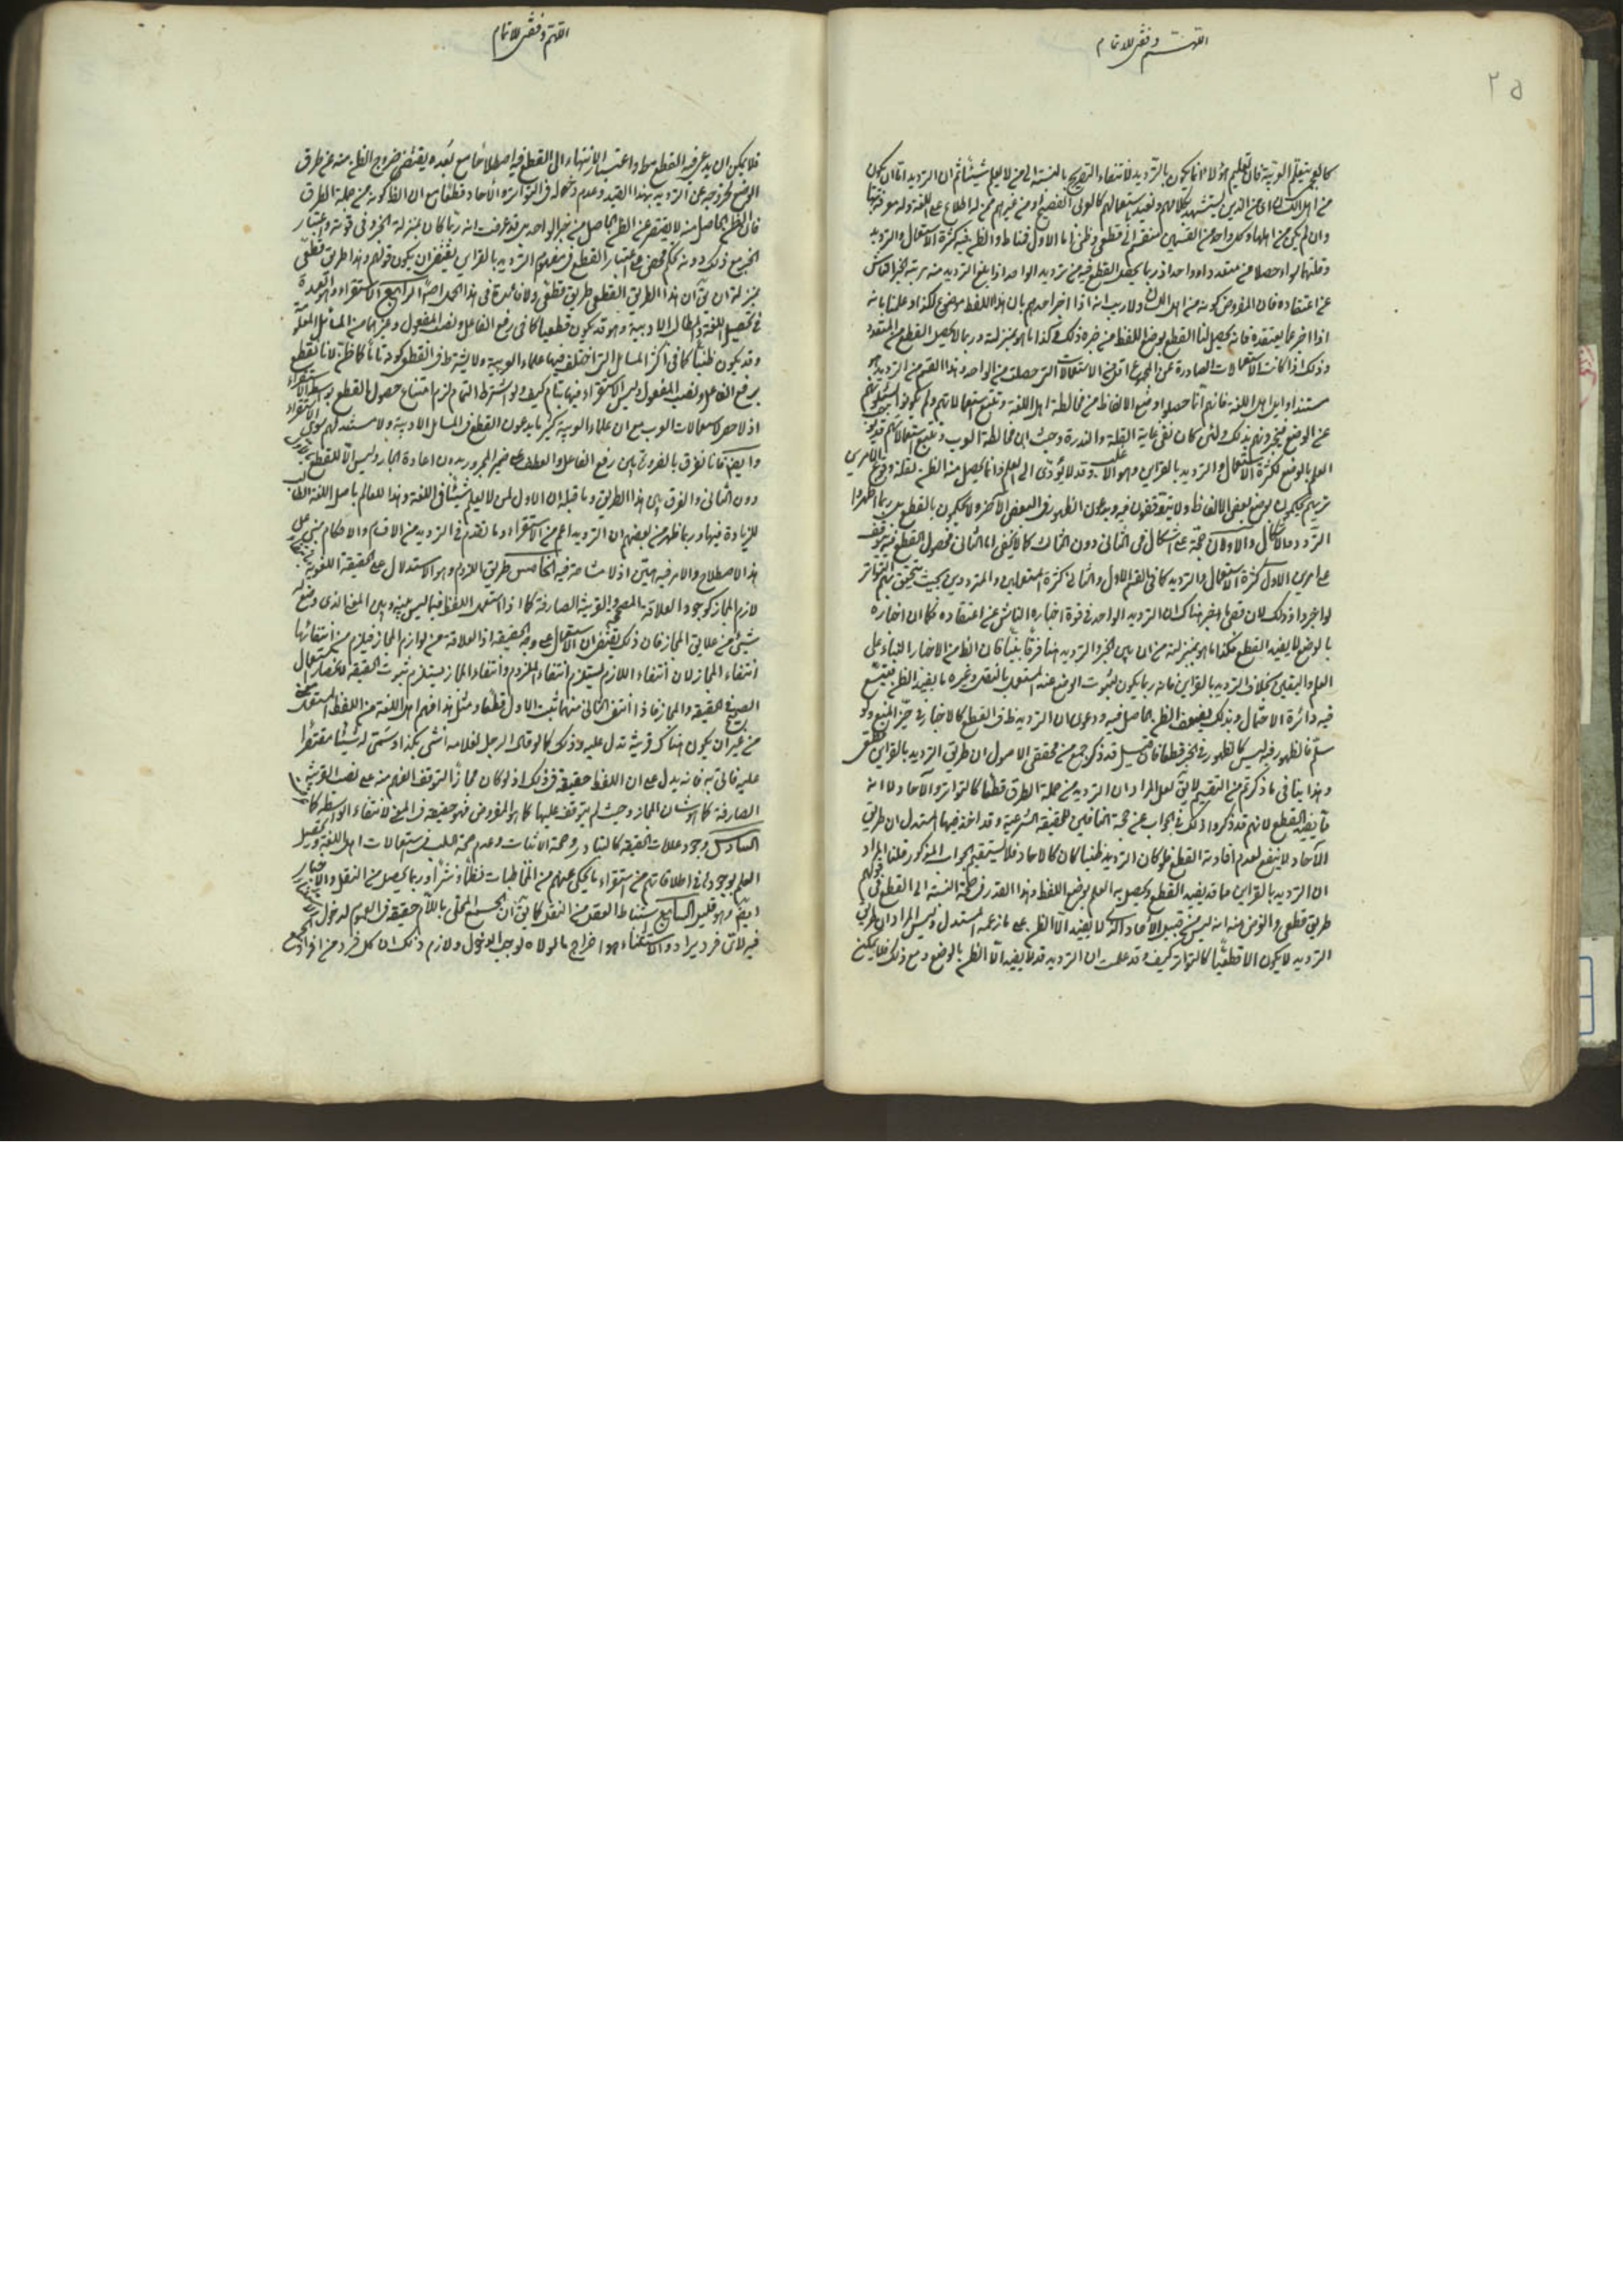 ٢٥
اللهم وفقنی للاتمام
کالعجمی یتعلم العربیة فان تعلیم هؤلاء انما یکون بالتردید لانتفاء التصریح بالنسبة الی من لا یعلم شیئا ثم ان التردید اما ان یکون
من اهل اللسان اعنی الذین یستشهد بکلامهم ویعتد باستعمالهم کالعربی الفصیح او من غیرهم ممن له اطلاع علی اللغة وله معرفة بها
وان لم یکن من اهلها وکل واحد من القسمین ینقسم الی قطعی وظنی اما الاول فمناط والظن فیه کثرة الاستعمال والتردید
وقلتهما سواء حصلا من متعدد او واحد اذ ربما یحصل القطع فیه من تردید الواحد اذا بلغ التردید منه مرتبة الخبر الناشی
عن اعتقاده فان المفروض کونه من اهل اللسان ولا ریب انه اذا اخبر احدهم بان هذا اللفظ موضوع لکذا وعلمنا بانه
اذا اخبر عما یعتقده فانه یحصل لنا القطع بوضع اللفظ من خبره ذلک وکذا ما هو بمنزلته وربما لا یحصل القطع من المتعدد
وذلک اذا کانت الاستعمالات الصادرة عن المجموع اقل من الاستعمالات التی حصلت من الواحد وهذا القسم من التردید هو
مستند اوایل اهل اللغة فانهم انما حصلوا وضع الالفاظ من مخالطة اهل اللغة وتتبع استعمالاتهم ولم یکونوا یسئلونهم
عن الوضع فیخبرونهم بذلک ولئن کان ففی غایة القلة والندرة وحیث ان مخالطة العرب وتتبع استعمالاتهم قد یورث
العلم بالوضع لکثرة الاستعمال والتردید بالقراین وهو الاغلب وقد لا یؤدی الی العلم وانما یحصل منه الظن لقلة وقوع الامرین
تریهم یحکمون بوضع بعض الالفاظ ولا یتوقفون فیه ویدعون الظهور فی البعض الآخر ولا یحکمون بالقطع بل ربما اظهروا
التردد والاشکال والاولان حجة علی اشکال فی الثانی دون الثالث کما لا یخفی اما الثانی فحصول القطع فیه یتوقف
علی امرین الاول کثرة الاستعمال والتردید کما فی القسم الاول والثانی کثرة المستعملین والمترددین بحیث یتحقق بهم التواتر
لو اخبروا وذلک لان قصی ما هناک ان التردید الواحد فی قوة اخباره الناشی عن اعتقاده فکما ان اخباره
بالوضع لا یفید القطع فکذا ما هو بمنزلته من ان بین الخبر والتردید هنا فرقا بینا فان الظ من الاخبار البناء علی
العلم والیقین بخلاف التردید بالقراین فانه ربما یکون لثبوت الوضع عند المستعمل بالنقل وغیره مما یفید الظن فیتسع
فیه دائرة الاحتمال وبذلک یضعف الظن الحاصل فیه ودعوی ان التردید ظ فی القطع کالاخبار فی حیز المنع ولو
سلم فالظهور فیه لیس کالظهور فی الخبر قطعا فان قیل قد ذکر جمع من محققی الاصول ان طریق التردید بالقراین قطعی
وهذا ینافی ما ذکرتم من التقسیم لا یق لعل المراد ان التردید من جملة الطرق قطعا کالتواتر والآحاد لا انه
مما یفید القطع لانهم قد ذکروا ذلک فی الجواب عن حجة النافین للحقیقة الشرعیة وقد اخذ فیها المستدل ان طریق
الآحاد لا ینفع لعدم افادته القطع فلو کان التردید ظنیا کان کالآحاد فلا یستقیم الجواب المذکور قلنا المراد
ان التردید بالقراین مما قد یفید القطع ویحصل به العلم بوضع اللفظ وهذا القدر فی صحة النسبة الی القطع فی قولهم
طریق قطعی والغرض منه انه لیس من قبیل الآحاد الذی لا یفید الا الظن علی ما زعمه المستدل ولیس المراد ان طریق
التردید لا یکون الا قطعیا کالتواتر کیف وقد علمت ان التردید قد لا یفید الا الظن بالوضع ومع ذلک فلا یمکن
اللهم وفقنی للاتمام
فلا یمکن ان یدعی فیه القطع مط واعتبار الانتهاء الی القطع فیه اصطلاحا مع بعده یقتضی خروج الظن منه عن طرق
الوضع لخروجه عن التردید بهذا القید وعدم دخوله فی التواتر والآحاد قطعا مع ان الظ کونه من جملة الطرق
فان الظن الحاصل منه لا یقصر عن الظن الحاصل من خبر الواحد بل قد عرفت انه ربما کان بمنزلة الخبر وفی قوته واعتبار
الخبر مع ذلک دونه تحکم محض علی اعتبار القطع فی مفهوم التردید بالقراین یقتضی ان یکون قولهم وهذا طریق قطعی
بمنزلة ان یق ان هذا الطریق القطعی طریق قطعی ولا فائدة فی هذا الحمل اصلا الرابع الاستقراء وهو العمدة
فی تحصیل اللغة والمطالب الادبیة وهو قد یکون قطعیا کما فی رفع الفاعل ونصب المفعول وغیرهما من المسائل المعلومة
وقد یکون ظنیا کما فی اکثر المسائل التی اختلف فیها علماء العربیة ولا یشترط فی القطع کونه تاما کما ظن لانا نقطع
برفع الفاعل ونصب المفعول ولیس الاستقراء فیها بتام کیف ولو اشترط التمام لزم امتناع حصول القطع بواسطة الاستقراء
اذ لا حصر لاستعمالات العرب مع ان علماء العربیة کثیرا ما یدعون القطع فی المسائل الادبیة ولا مستند لهم سوی الاستقراء
وایضا فانا نفرق بالضرورة بین رفع الفاعل والعطف علی ضمیر المجرور بدون اعادة الجار ولیس الا للقطع فی الاول
دون الثانی والفرق بین هذا الطریق وما قبله ان الاول لمن لا یعلم شیئا فی اللغة وهذا للعالم باصل اللغة الطالب
للزیادة فیها وربما ظهر من بعضهم ان التردید اعم من الاستقراء وما تقدم فی التردید من الاقسام والاحکام مبنی علی
هذا الاصطلاح والامر فیه هین اذ لا مشاحة فیه الخامس طریق اللزوم وهو الاستدلال علی الحقیقة اللغویة بانتفاء
لازم المجاز کوجود العلاقة المصححة والقرینة الصارفة کما اذا استعمل اللفظ فیما لیس بینه وبین المعنی الذی وضع له
شیئ من علایق المجاز فان ذلک یقتضی ان الاستعمال علی وجه الحقیقة اذ العلاقة من لوازم المجاز فیلزم من انتفائها
انتفاء المجاز لان انتفاء اللازم یستلزم انتفاء الملزوم وانتفاء المجاز یستلزم ثبوت الحقیقة لانحصار الاستعمال
الصحیح فی الحقیقة والمجاز فاذا انتفی الثانی منهما ثبت الاول قطعا ومثل هذا فهم اهل اللغة من اللفظ المستعمل معنی
من غیر ان یکون هناک قرینة تدل علیه وذلک کما لو قال الرجل لغلامه ائتنی بکذا وسمی له شیئا مقتصرا
علیه فاتی به فانه یدل علی ان اللفظ حقیقة فی ذلک اذ لو کان مجازا لتوقف الفهم منه علی نصب القرینة
الصارفة کما هو شان المجاز وحیث لم یتوقف علیها کما هو المفروض فهو حقیقة فی المعنی لانتفاء الواسطة
السادس وجود علامات الحقیقة کالتبادر وصحة الاثبات وعدم صحة السلب فی استعمالات اهل اللغة وتحصیل
العلم بوجودها فی اطلاقاتهم من استقراء ما یحکی عنهم من المخاطبات نظما ونثرا وربما یحصل من النقل والاخبار
ایضا وهو قلیل السابع استنباط العقل من النقل کما یق ان الجمع المحلی باللام حقیقة فی العموم لدخول الاستثناء
فیه لای فرد یراد والاستثناء هو اخراج ما لولاه لوجب الدخول ولازم ذلک ان کل فرد من افراد الجمع